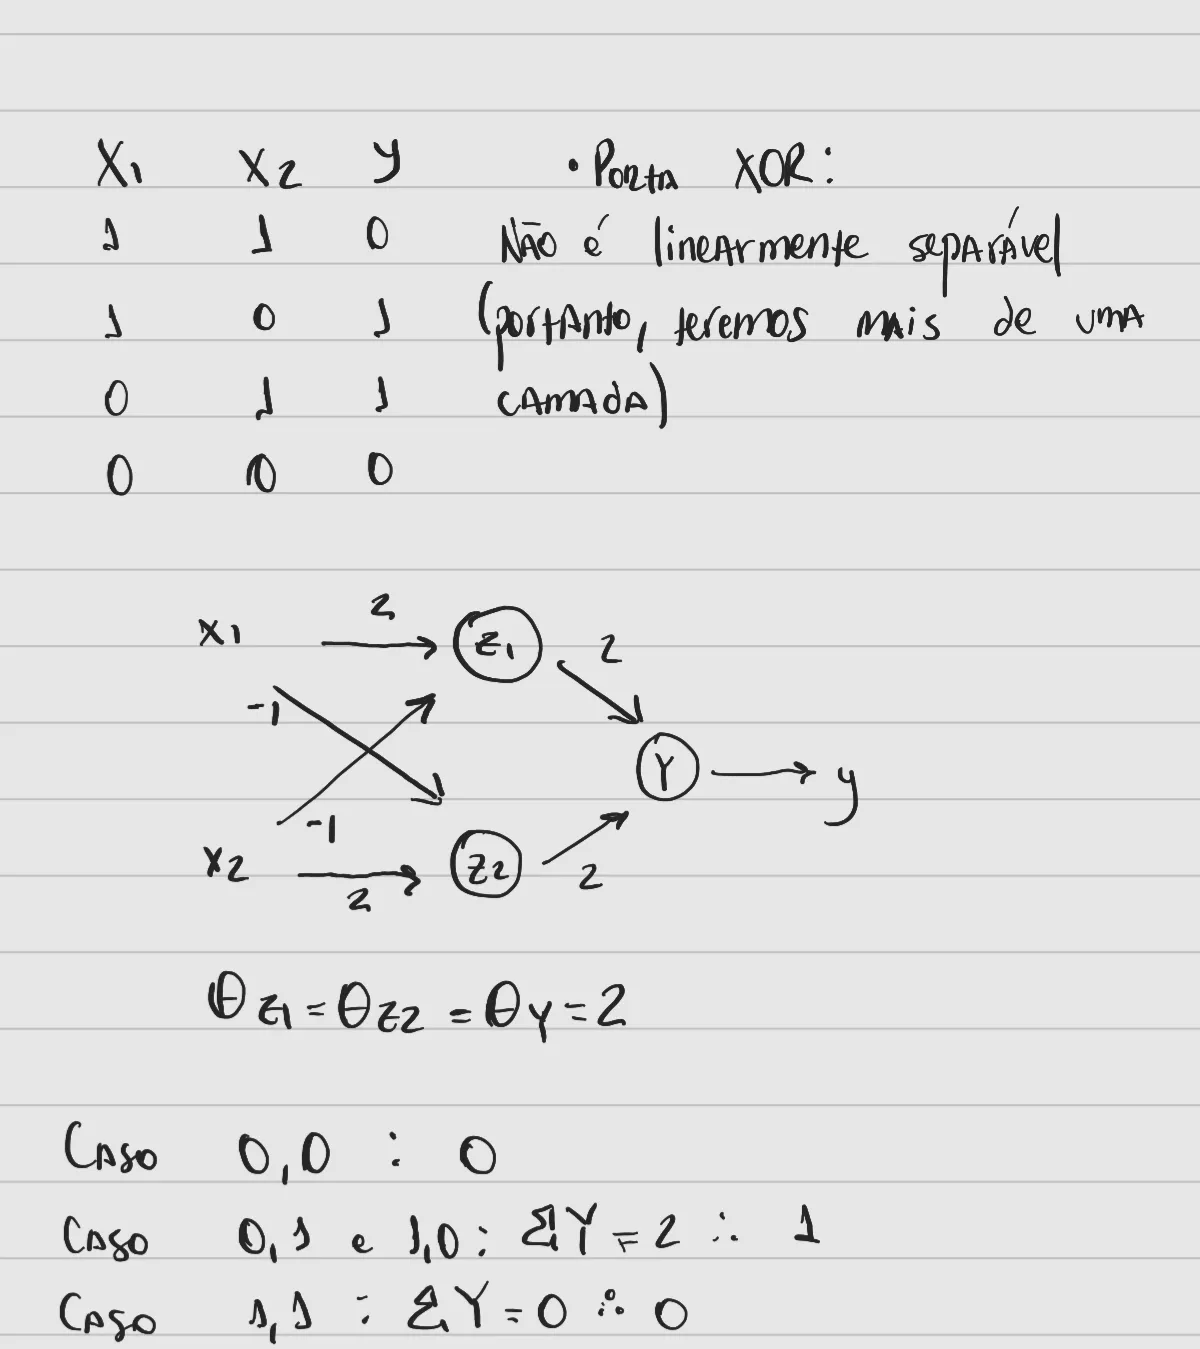 X1 X2 y • Porta XOR:
1 1 0 Não é linearmente separável
1 0 1 (portanto, teremos mais de uma
0 1 1 camada)
0 0 0
x1 2 z1 2
-1
Y y
-1
x2 2 z2 2
θz1 = θz2 = θY = 2
Caso 0,0 : 0
Caso 0,1 e 1,0 : ΣY = 2 ∴ 1
Caso 1,1 : ΣY = 0 ∴ 0